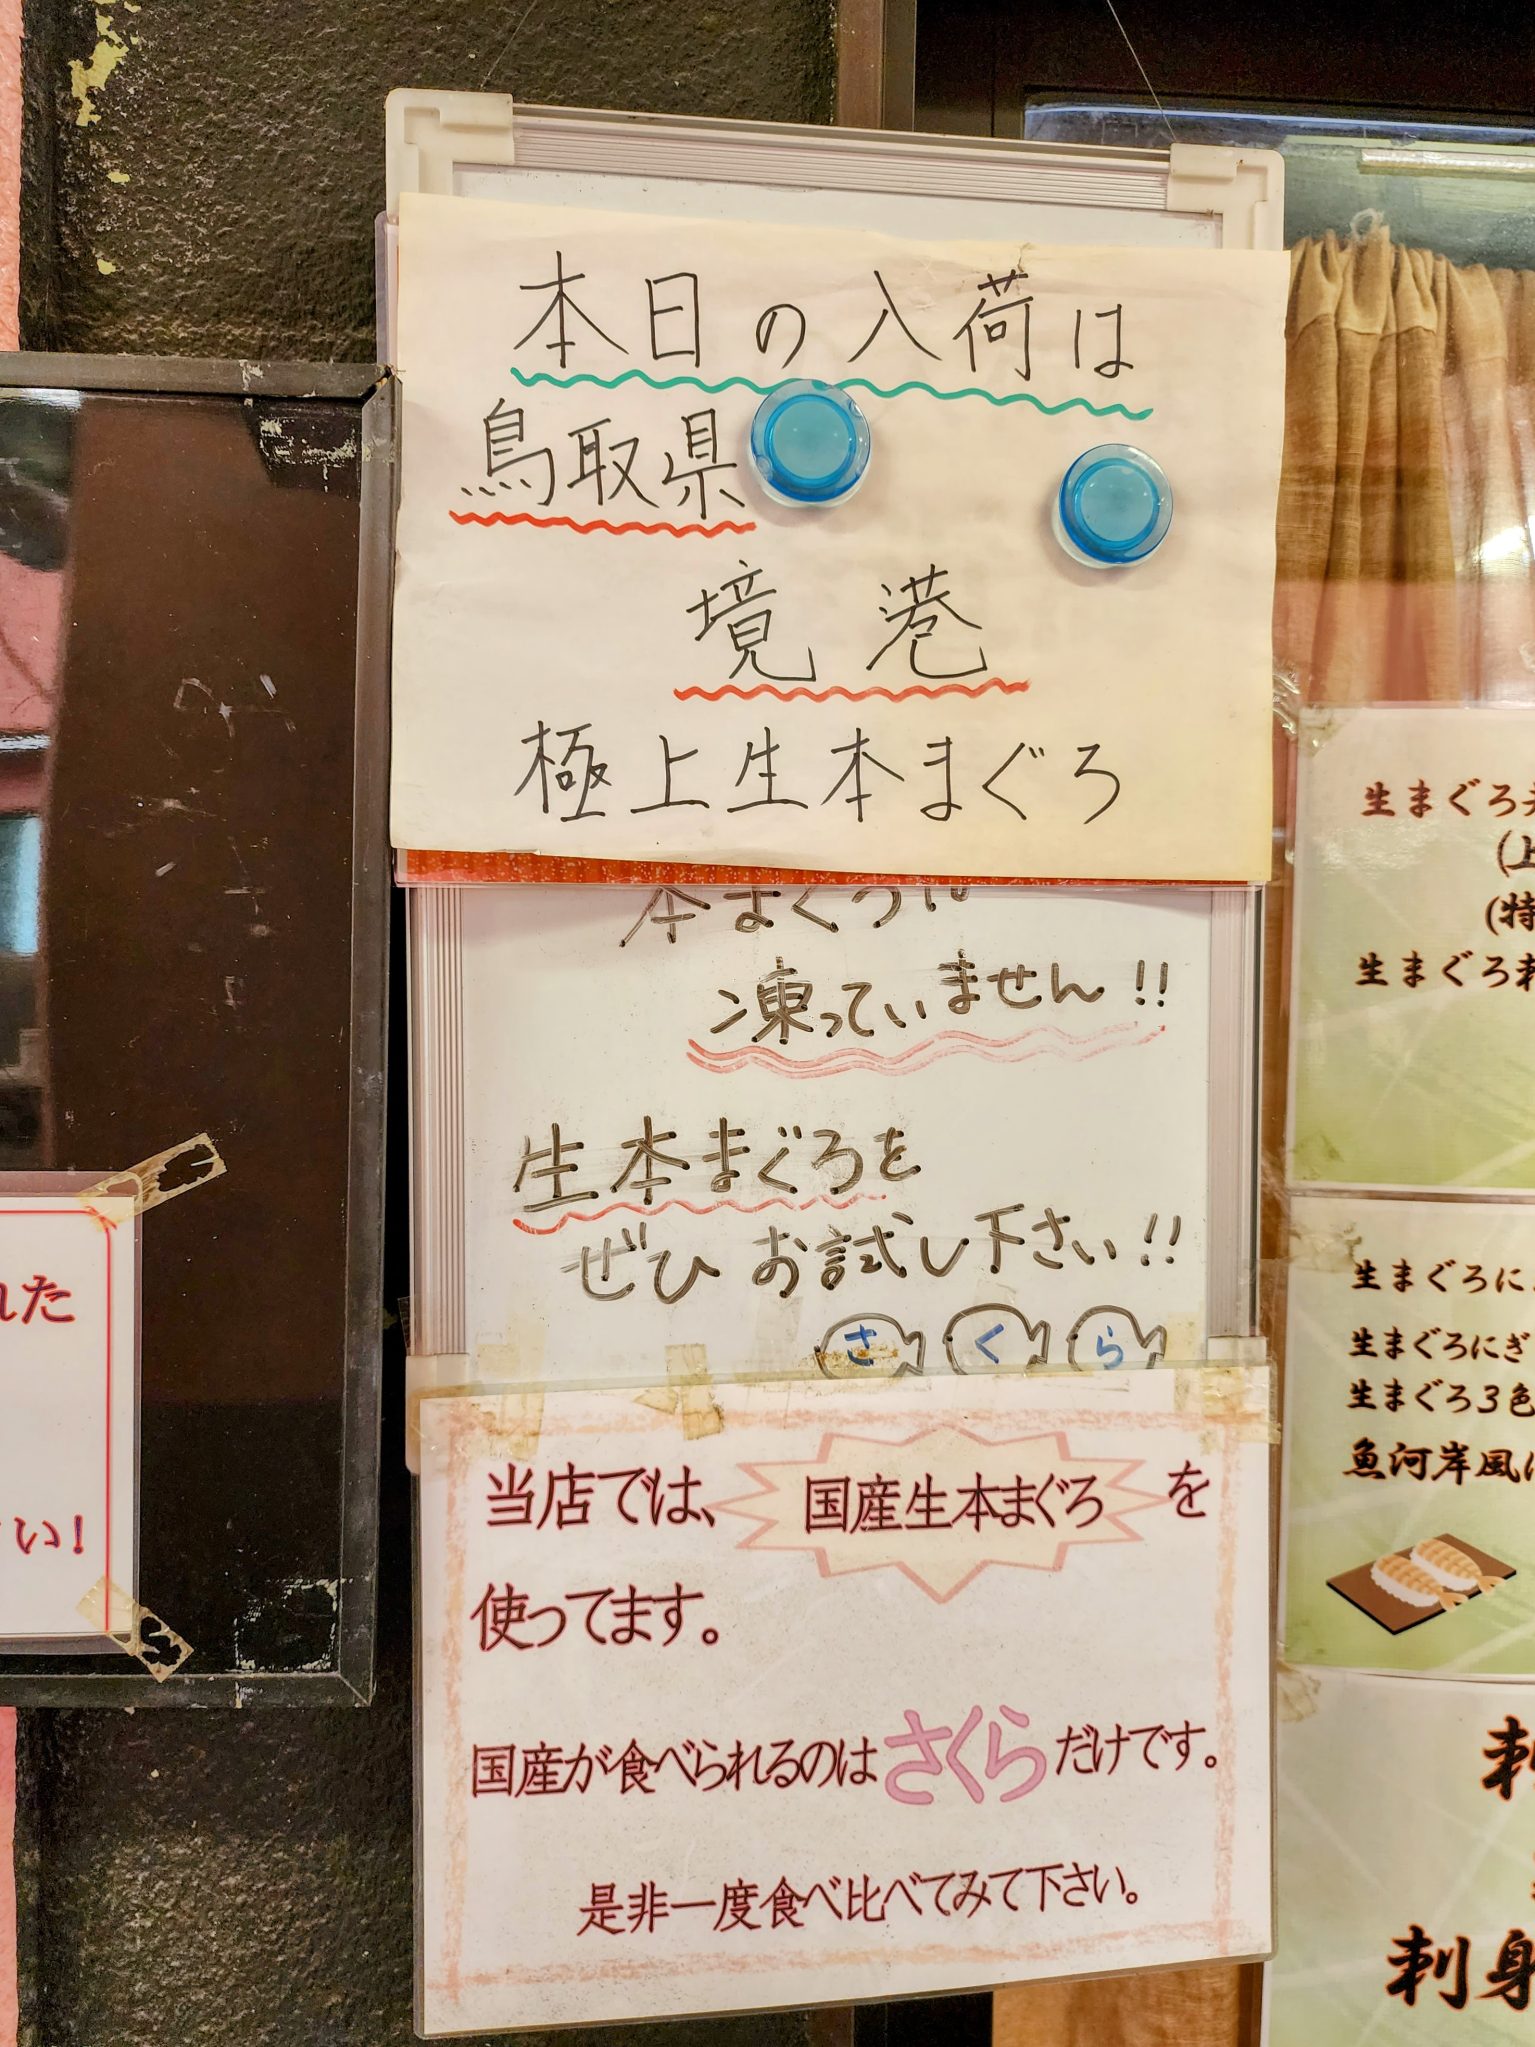 本日の入荷は
鳥取県
境港
極上生本まぐろ
本まぐろ!!
凍っていません!!
生本まぐろを
ぜひお試し下さい!!
さくら
当店では、国産生本まぐろを
使ってます。
国産が食べられるのはさくらだけです。
是非一度食べ比べてみて下さい。
れた
さい!
生まぐろ
(上
(特
生まぐろ刺
生まぐろに
生まぐろにぎ
生まぐろ3色
魚河岸風に
刺
刺身